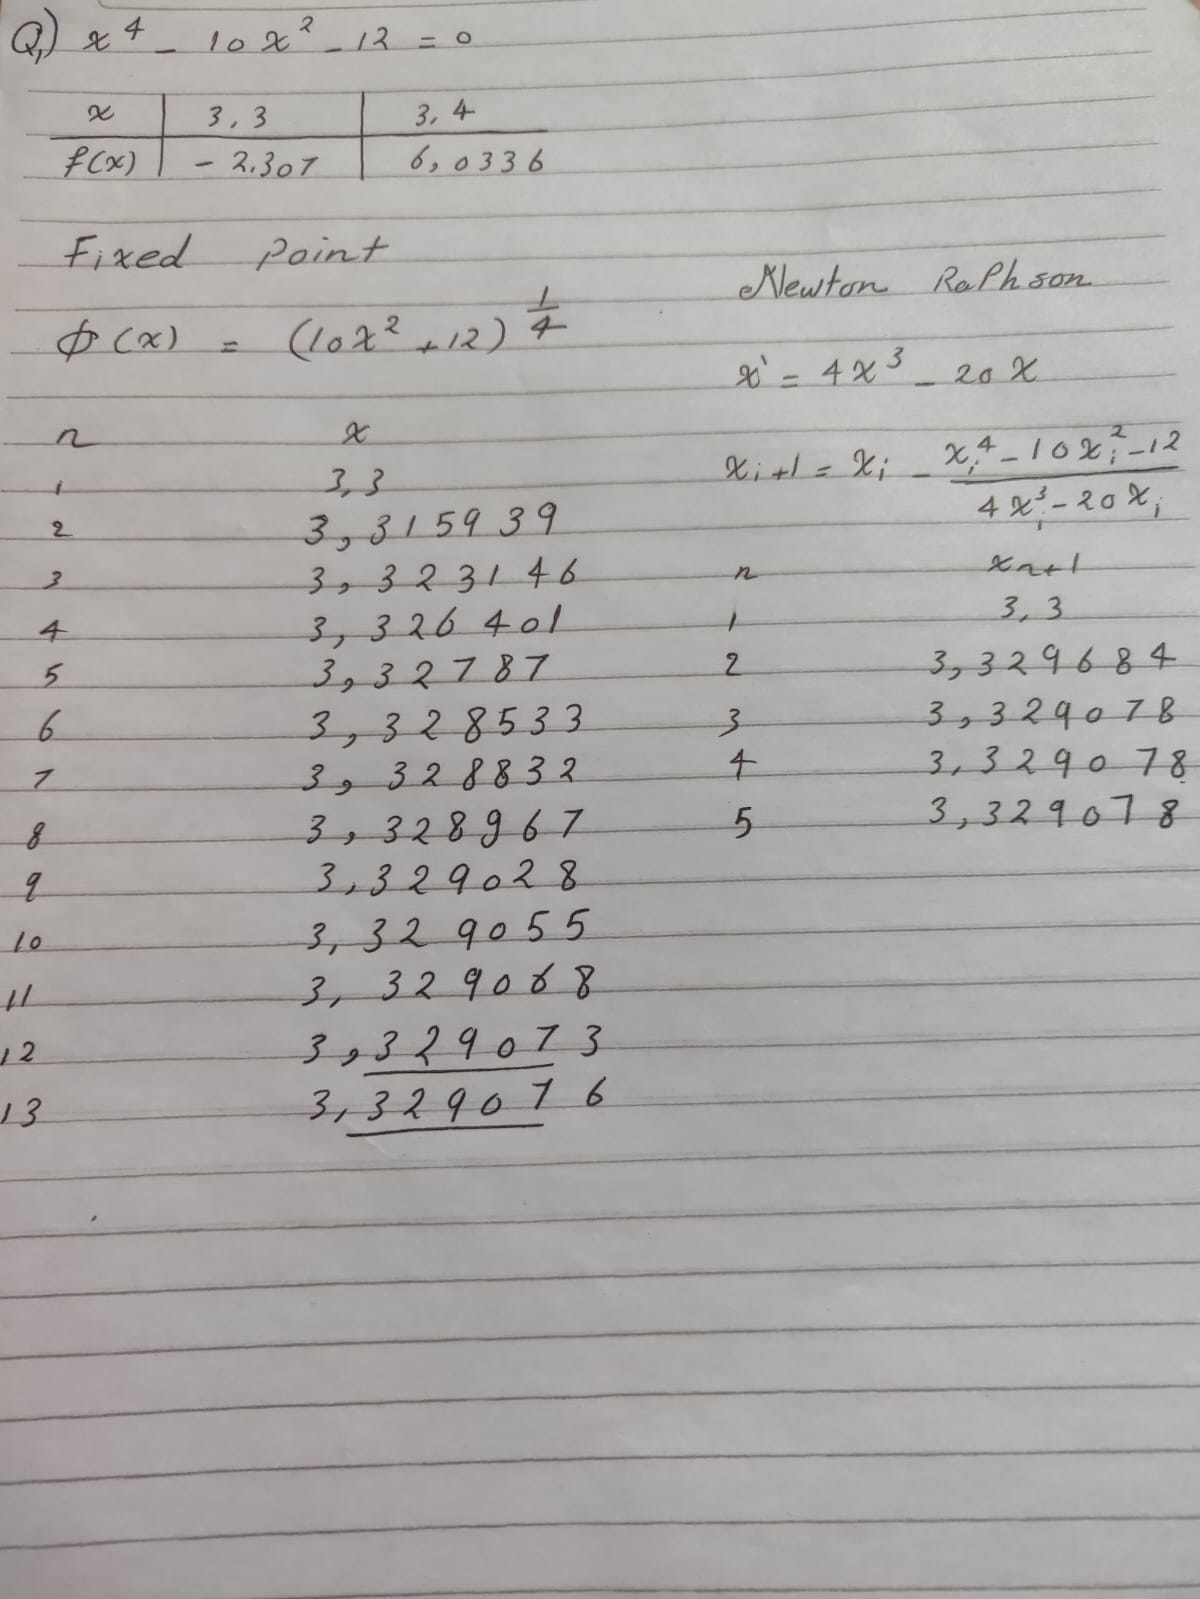 Q1) x^4 - 10x^2 - 12 = 0
x | 3,3 | 3,4
f(x) | - 2.307 | 6,0336
Fixed Point
ϕ(x) = (10x^2 + 12)^1/4
n x
1 3,3
2 3,315939
3 3,323146
4 3,326401
5 3,32787
6 3,328533
7 3,328832
8 3,328967
9 3,329028
10 3,329055
11 3,329068
12 3,329073
13 3,329076
Newton RaPhson
x` = 4x^3 - 20x
x_i+1 = x_i - (x_i^4 - 10x_i^2 - 12) / (4x_i^3 - 20x_i)
n xn+1
1 3,3
2 3,329684
3 3,329078
4 3,329078
5 3,329078